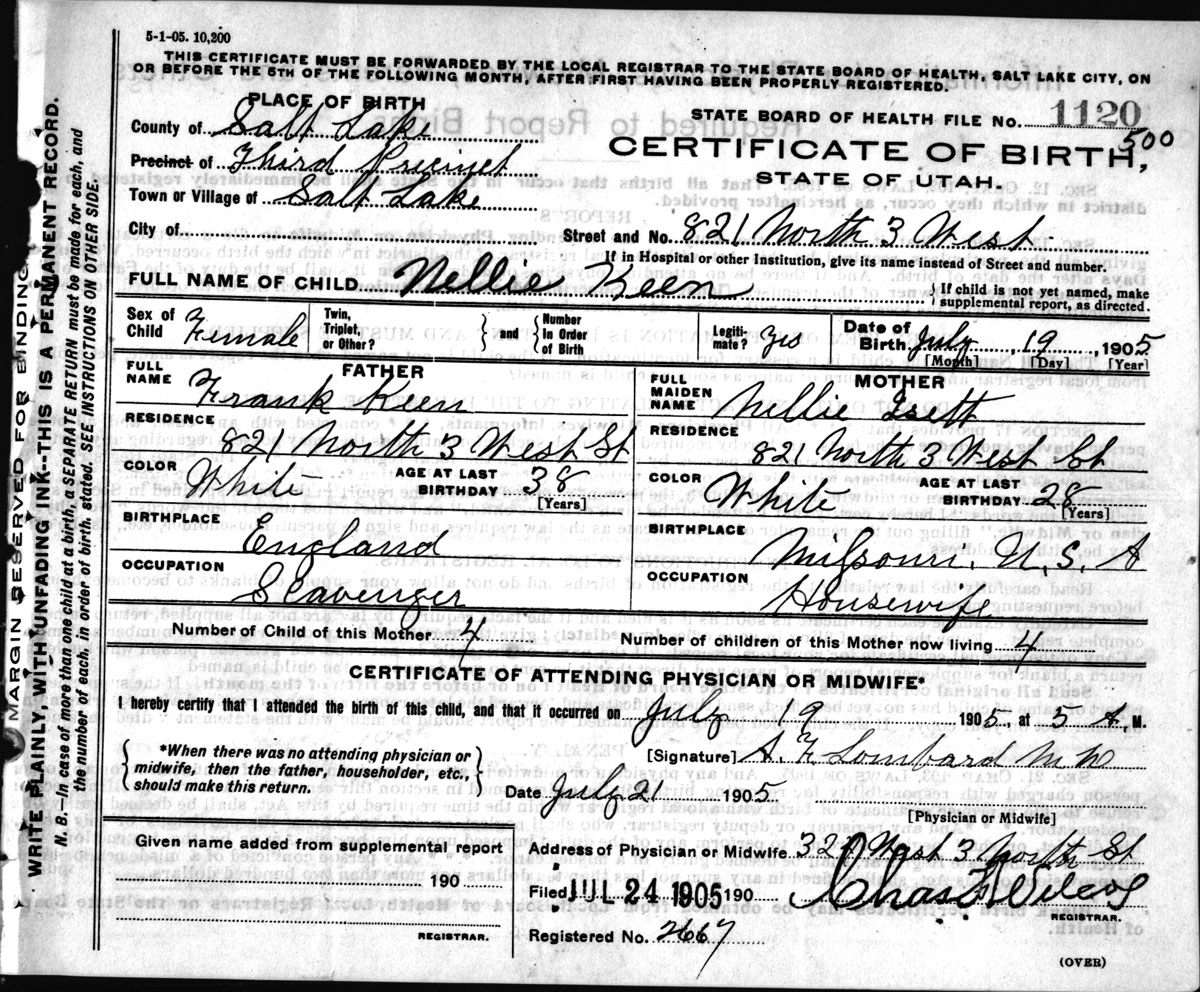 5-1-05. 10,200
THIS CERTIFICATE MUST BE FORWARDED BY THE LOCAL REGISTRAR TO THE STATE BOARD OF HEALTH, SALT LAKE CITY, ON
OR BEFORE THE 5TH OF THE FOLLOWING MONTH, AFTER FIRST HAVING BEEN PROPERLY REGISTERED.
PLACE OF BIRTH
STATE BOARD OF HEALTH FILE NO. 1120
500
County of Salt Lake
CERTIFICATE OF BIRTH,
Precinct of Third Precinct
STATE OF UTAH.
Town or Village of Salt Lake
City of
Street and No. 821 North 3 West
If in Hospital or other Institution, give its name instead of Street and number.
FULL NAME OF CHILD Nellie Keen
If child is not yet named, make
supplemental report, as directed.
Sex of Child Female
Twin, Triplet, or Other?
and
Number In Order of Birth
Legiti- mate? Yes
Date of Birth July 19, 1905
[Month] [Day] [Year]
FATHER
FULL NAME Frank Keen
RESIDENCE
821 North 3 West St
COLOR White AGE AT LAST BIRTHDAY 38
[Years]
BIRTHPLACE
England
OCCUPATION
Scavenger
MOTHER
FULL MAIDEN NAME Nellie Isett
RESIDENCE
821 North 3 West St
COLOR White AGE AT LAST BIRTHDAY 28
[Years]
BIRTHPLACE
Missouri. U.S.A
OCCUPATION
Housewife
Number of Child of this Mother 4 Number of children of this Mother now living 4
CERTIFICATE OF ATTENDING PHYSICIAN OR MIDWIFE*
I hereby certify that I attended the birth of this child, and that it occurred on July 19 1905, at 5 A, M.
*When there was no attending physician or
midwife, then the father, householder, etc.,
should make this return.
[Signature] Lombard M D
Date July 21 1905
[Physician or Midwife]
Given name added from supplemental report
190
REGISTRAR.
Address of Physician or Midwife 320 West 3 North St
Filed JUL 24 1905 190
Chas
REGISTRAR.
Registered No. 2667
(OVER)
MARGIN RESERVED FOR BINDING
WRITE PLAINLY WITH UNFADING INK--THIS IS A PERMANENT RECORD.
N. B.—In case of more than one child at a birth, a SEPARATE RETURN must be made for each, and
the number of each, in order of birth, stated. SEE INSTRUCTIONS ON OTHER SIDE.